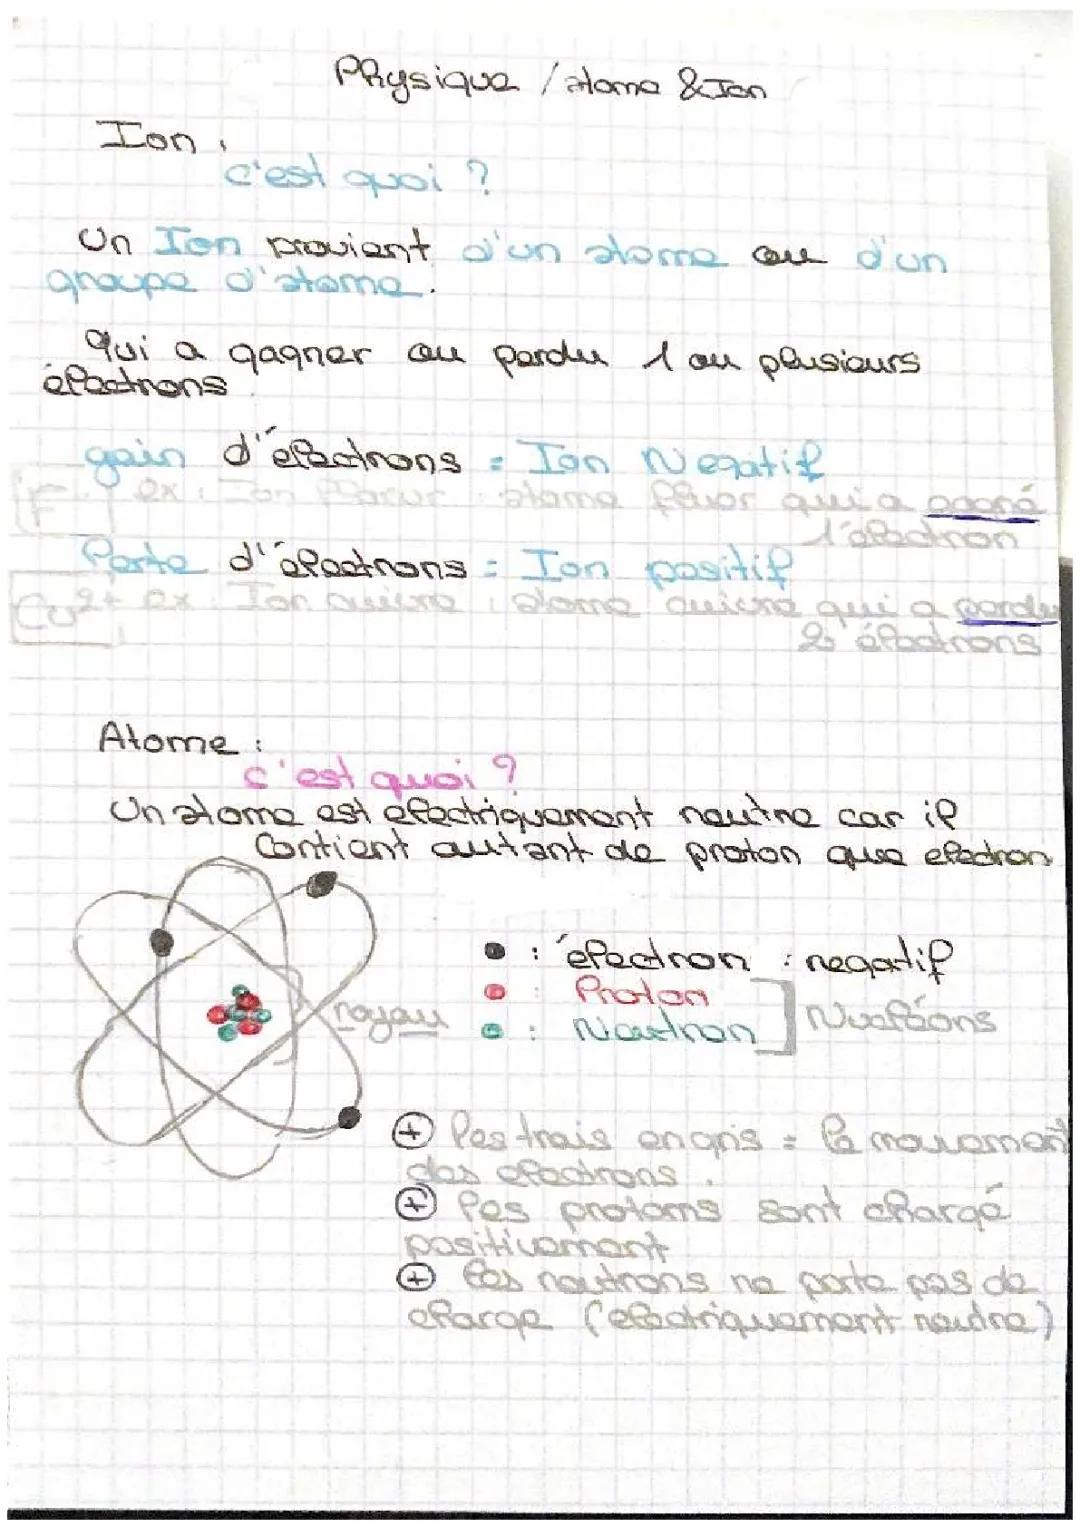 Physique / atome & Ion
Ion :
c'est quoi ?
Un Ion provient d'un atome ou d'un
groupe d'atome.
Qui a gagner ou perdu 1 ou plusieurs
électrons
gain d'électrons = Ion Negatif
F⁻ ex : Ion fluor : atome fluor qui a gagné
1 électron
Perte d'électrons = Ion positif
Cu²⁺ ex : Ion cuivre : atome cuivre qui a perdu
2 électrons
Atome :
c'est quoi ?
Un atome est électriquement neutre car il
Contient autant de proton que electron
: électron : negatif
: Proton
noyau
: Neutron
Nucléons
+ les trais en gris = le mouvement
des electrons.
+ les protons sont chargé
positivement
+ les neutrons ne porte pas de
charge (electriquement neutre)